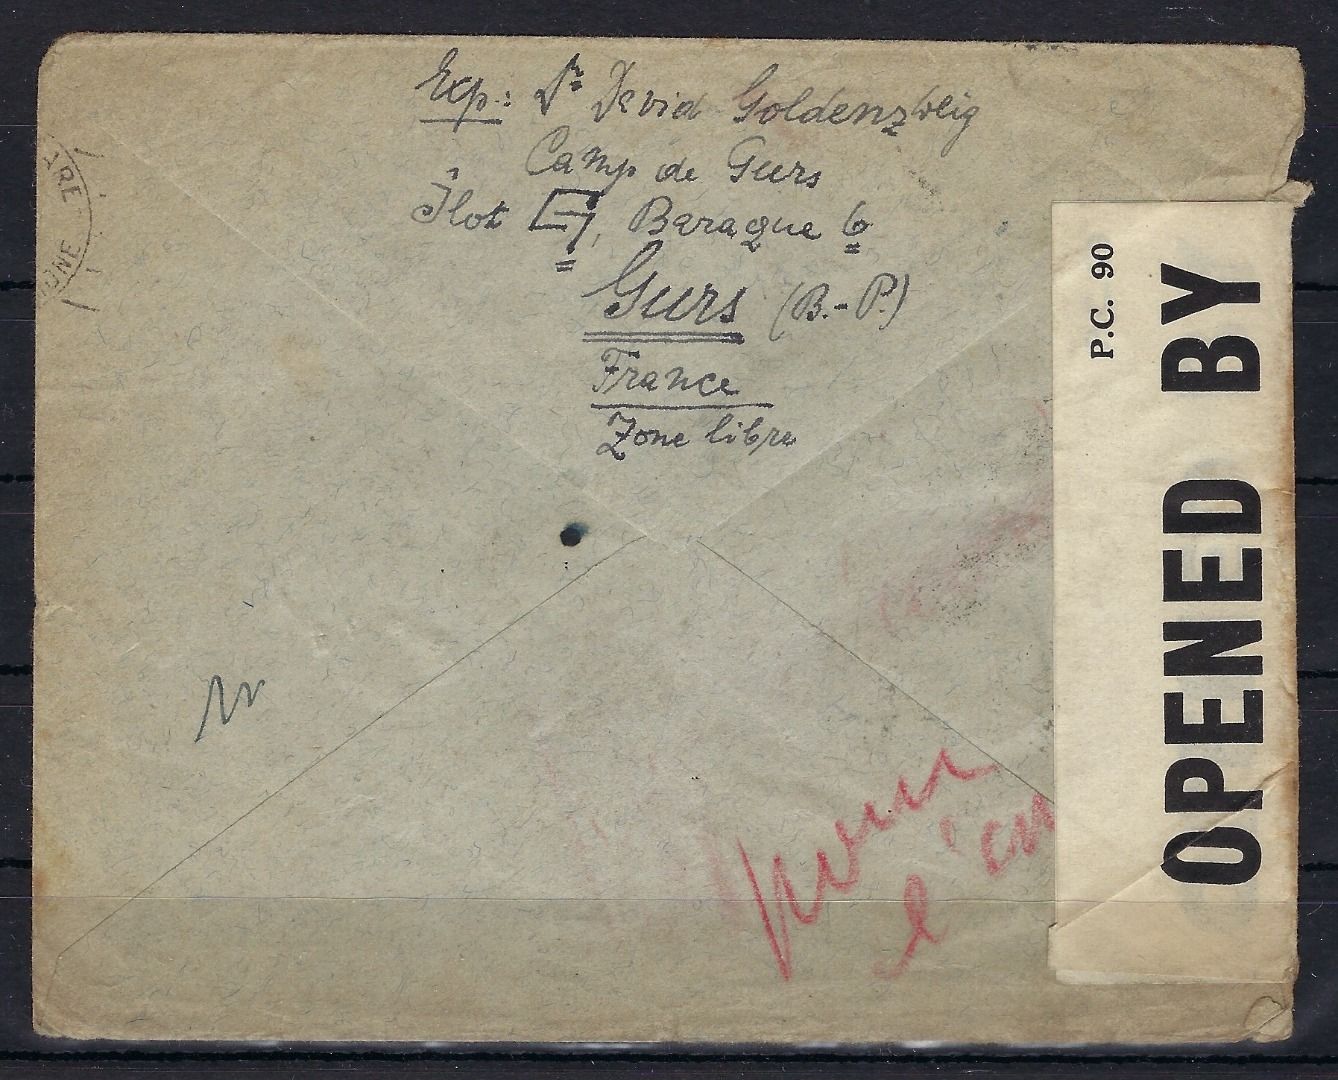 Exp: Dr David Goldenzweig
Camp de Gurs
Îlot E, Baraque 6
Gurs (B.-P.)
France
Zone libre
P.C. 90
OPENED BY
TRE
pour
l'en